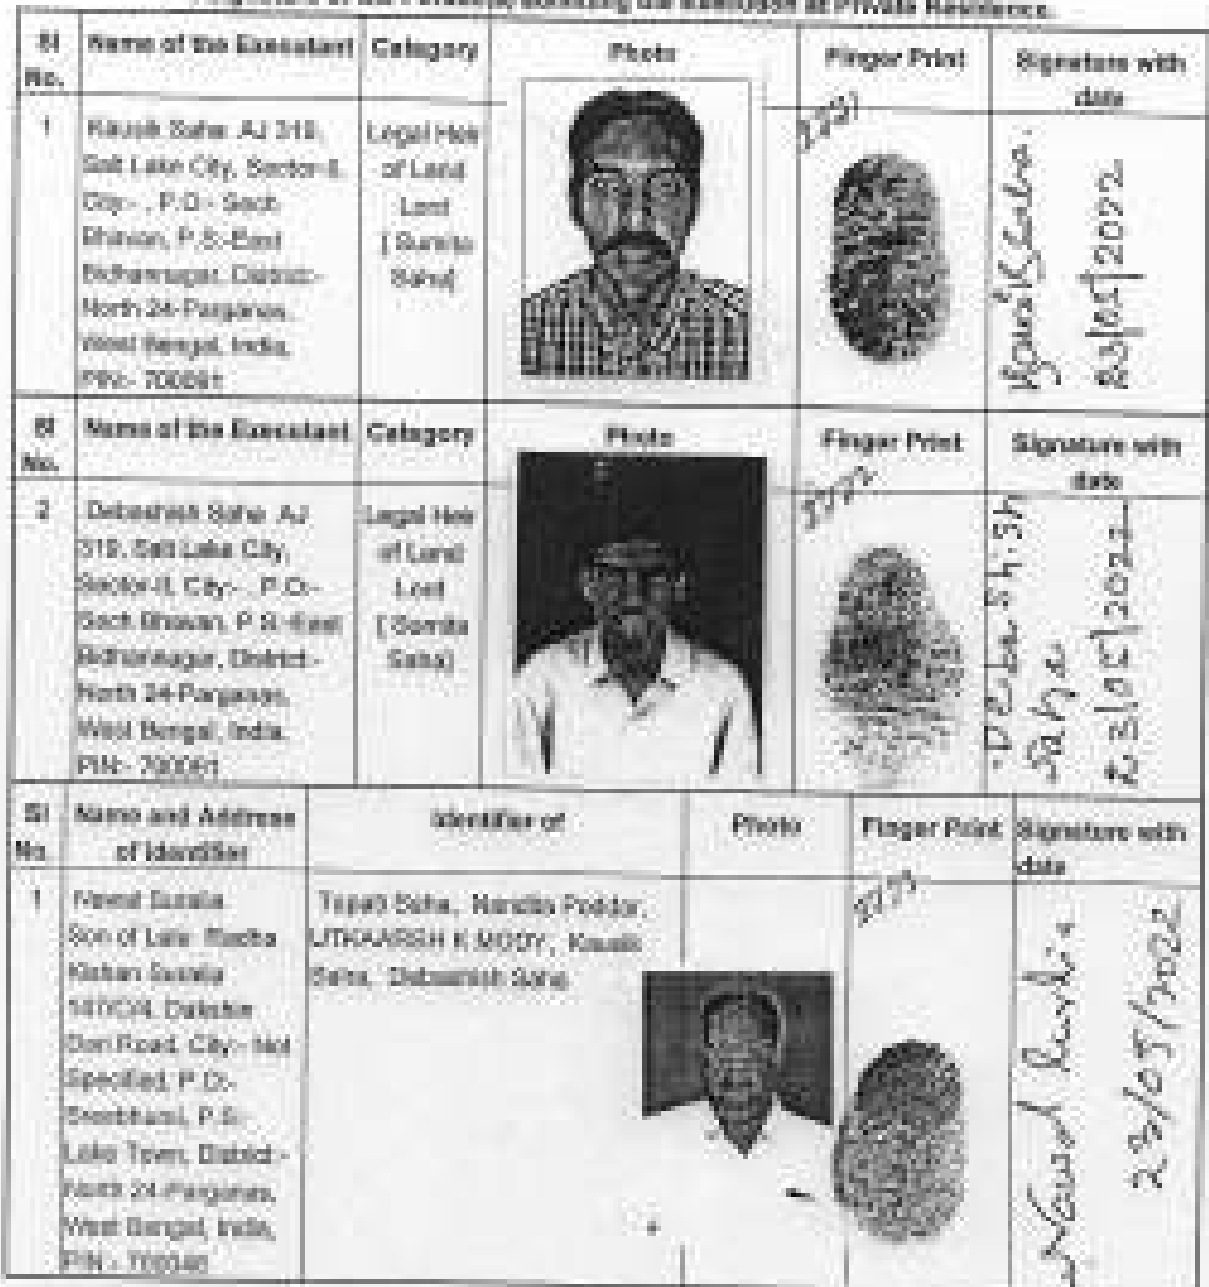 Signature of the Person(s) admitting the Execution at Private Residence.
Sl No. Name of the Executant Category Photo Finger Print Signature with date
1
Kausik Saha AJ 319,
Salt Lake City, Sector-II,
City:- , P.O:- Sech
Bhavan, P.S:-East
Bidhannagar, District:-
North 24-Parganas,
West Bengal, India,
PIN:- 700091
Legal Heir
of Land
Lord
[Sumita
Saha]
Kausik Saha.
23/05/2022
Sl No. Name of the Executant Category Photo Finger Print Signature with date
2
Debashish Saha AJ
319, Salt Lake City,
Sector-II, City:- , P.O:-
Sech Bhavan, P.S:-East
Bidhannagar, District:-
North 24-Parganas,
West Bengal, India,
PIN:- 700091
Legal Heir
of Land
Lord
[Sumita
Saha]
Debashish
Saha
23/05/2022
Sl No. Name and Address of identifier Identifier of Photo Finger Print Signature with date
1
Son of Late
Kishan
Dakshin
Dari Road, City:- Not
Specified, P.O:-
Sreebhumi, P.S:-
Lake Town, District:-
North 24-Parganas,
West Bengal, India,
PIN:- 700048
Tapati Saha, Nandita Poddar,
UTKAARSH K MODY, Kausik
Saha, Debashish Saha
23/05/2022